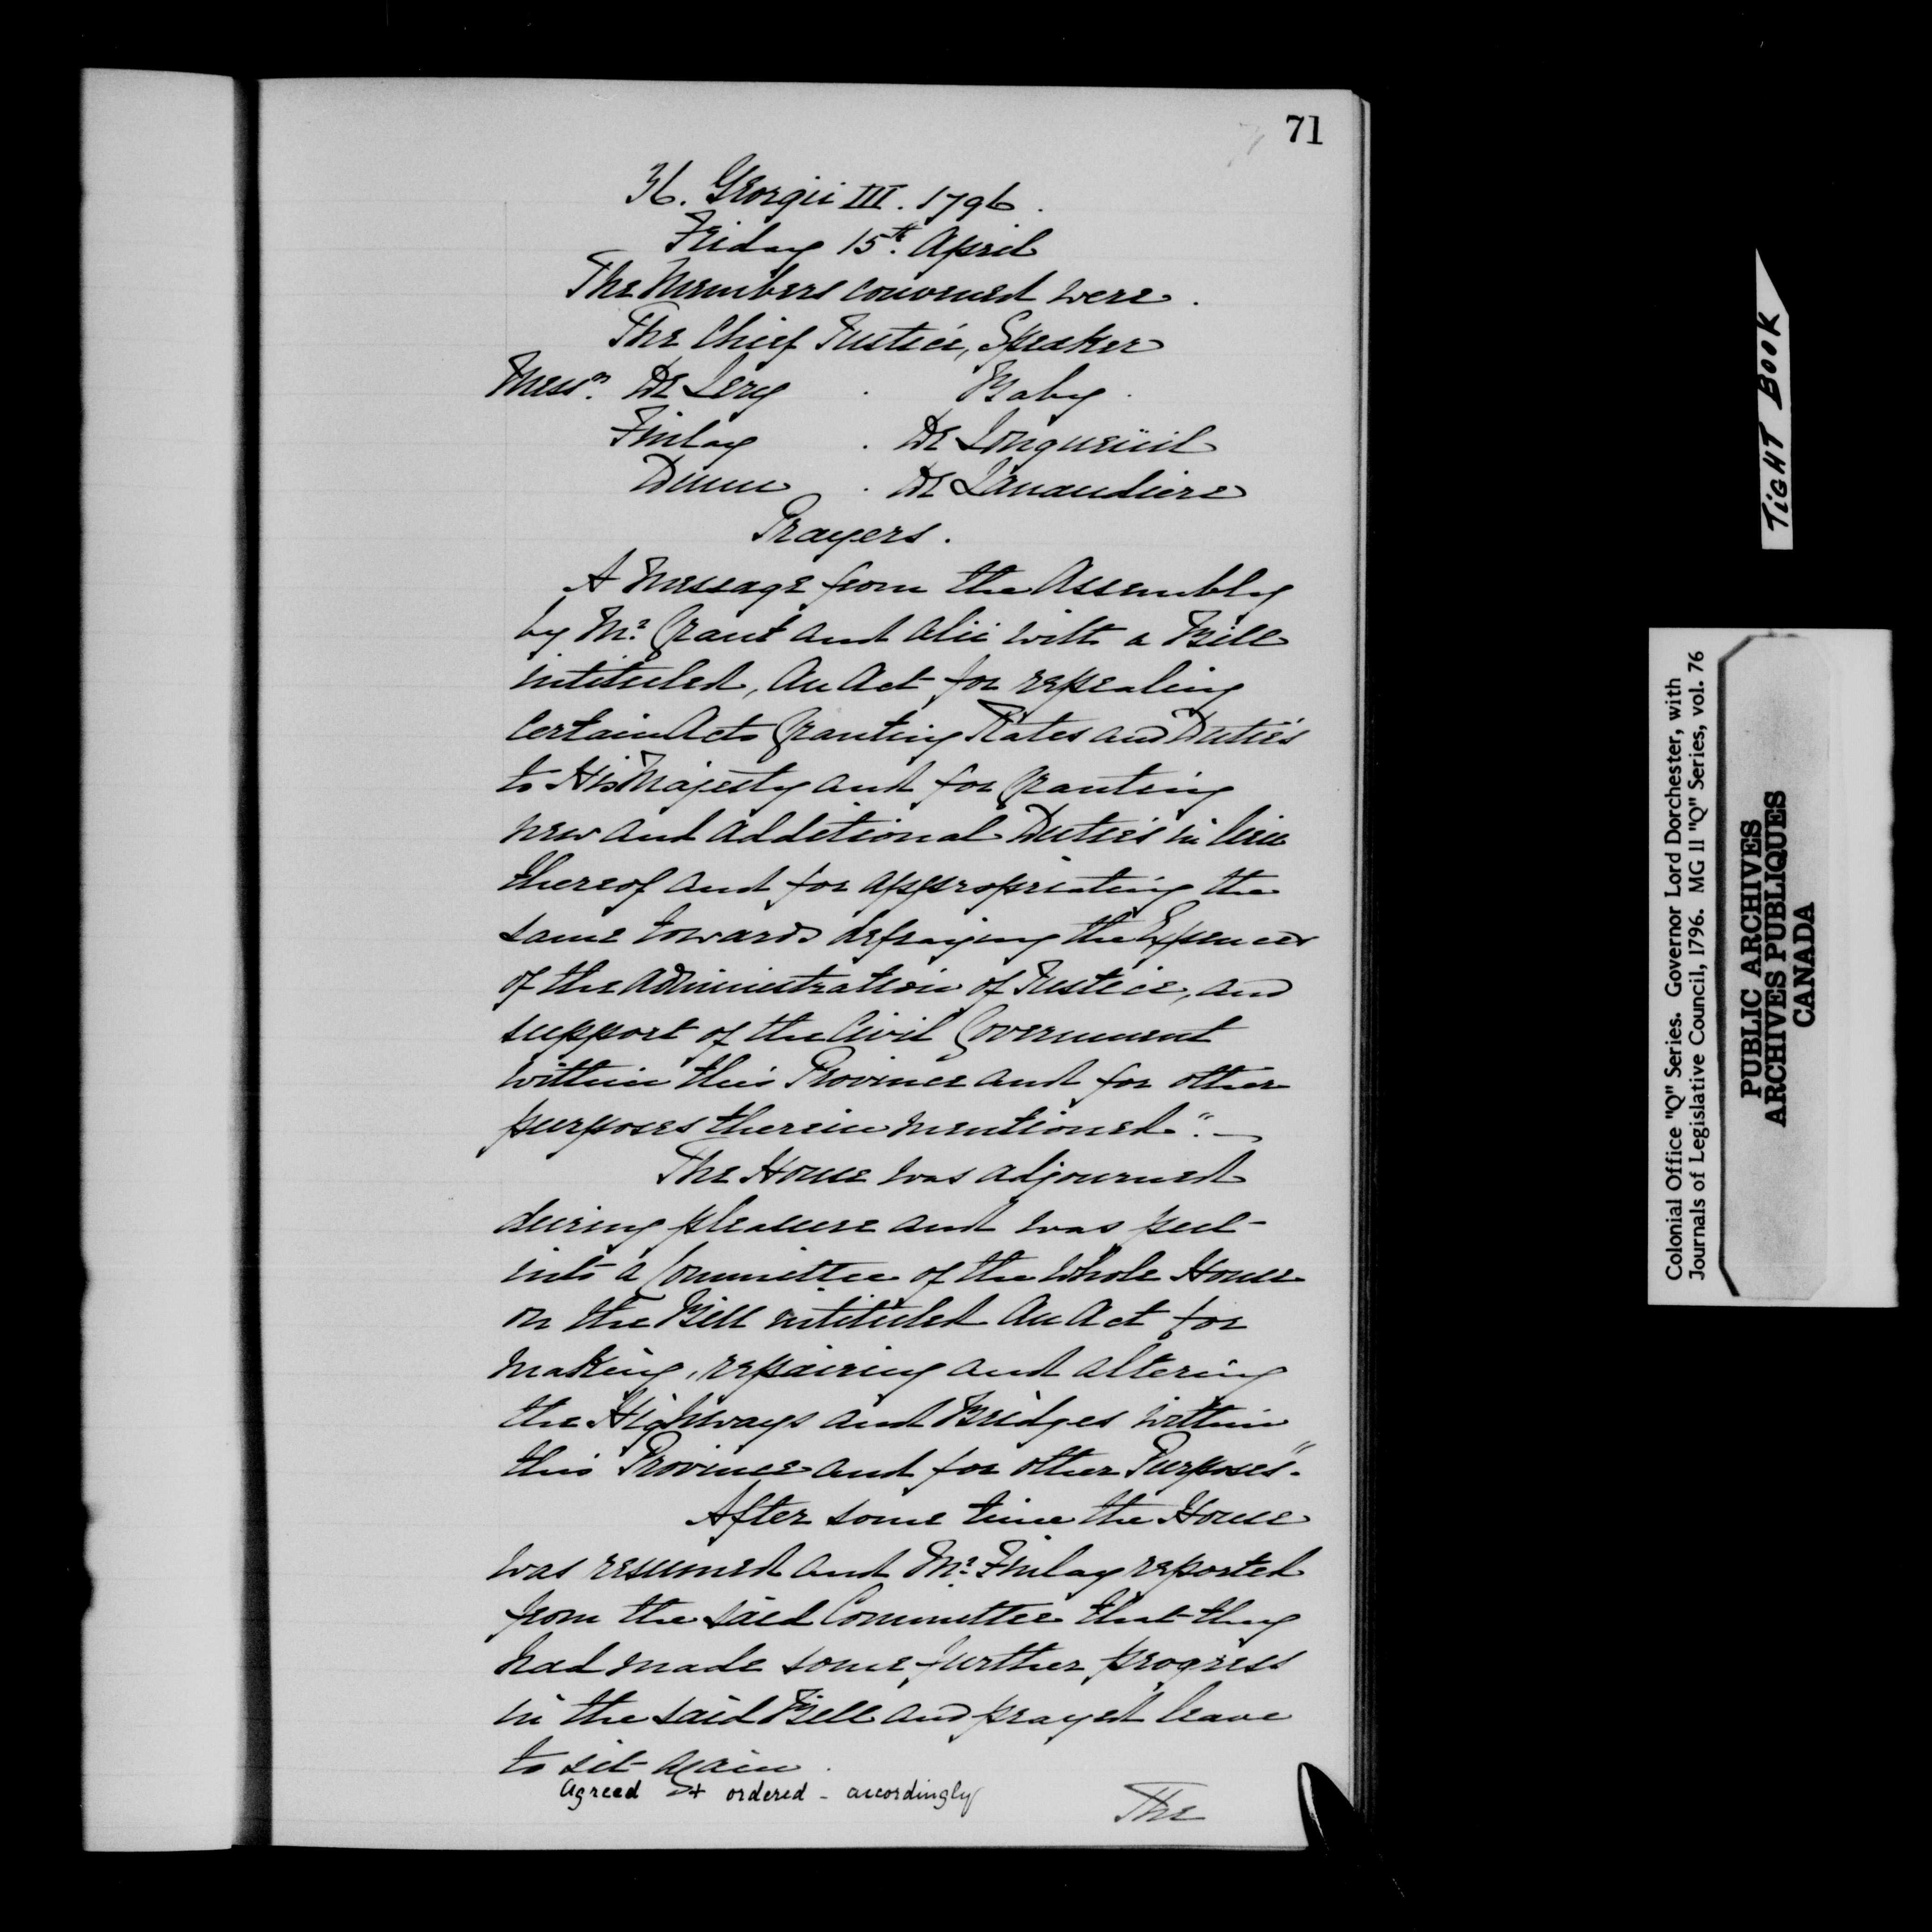 71
71
36. Georgii III. 1796.
Friday 15th. April
The Members convened were.
The Chief Justice, Speaker
Messrs. De Lery . Baby.
Finlay . De Longueüil
Dunn . De Lanaudiere
Prayers.
A Message from the Assembly
by Mr. Grant and alii with a Bill
intituled, An Act for repealing
Certain Acts Granting Rates and Duties
to His Majesty and for Granting
new and additional Duties in lieu
thereof and for appropriating the
same towards defraying the Expences
of the Administration of Justice, and
support of the Civil Government
within this Province and for other
purposes therein mentioned". —
The House was adjourned
during pleasure and was put
into a Committee of the whole House
on the Bill intituled An Act for
making, repairing and altering
the Highways and Bridges within
this Province and for other Purposes".
After some time the House
was resumed and Mr. Finlay reported
from the said Committee that they
had made some further progress
in the said Bill and prayed leave
to sit again.
Agreed & ordered - accordingly
The
TiGHT BOOK
Colonial Office "Q" Series. Governor Lord Dorchester, with
Journals of Legislative Council, 1796. MG 11 "Q" Series, vol. 76
PUBLIC ARCHIVES
ARCHIVES PUBLIQUES
CANADA